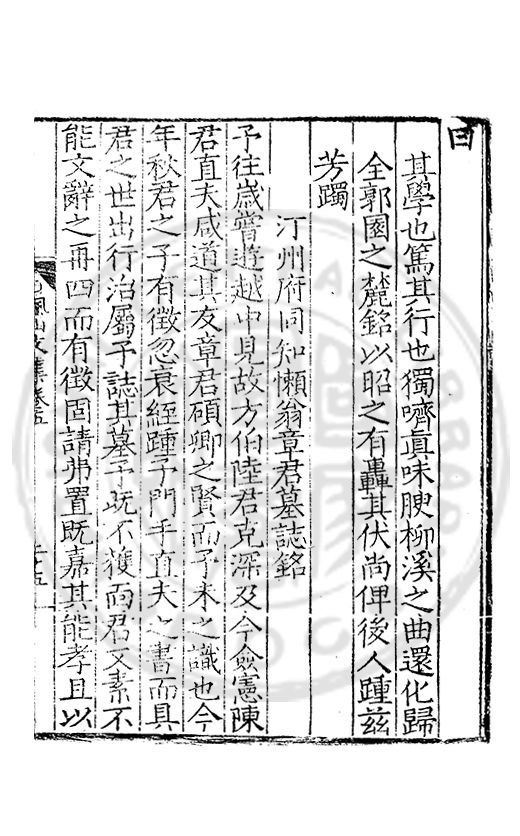 其學也篤其行也獨嚌眞味腴柳溪之曲還化歸
全郭園之麓銘以昭之有轟其伏尚俾後人踵兹
芳躅
汀州府同知懶翁章君墓誌銘
予往歲嘗遊越中見故方伯陸君克深及今僉憲陳
君直夫咸道其友章君碩卿之賢而予未之識也今
年秋君之子有徵忽衰絰踵予門手直夫之書而具
君之世出行治屬予誌其墓予既不獲面君又素不
能文辭之再四而有徵固請弗置既嘉其能孝且以
文集卷五